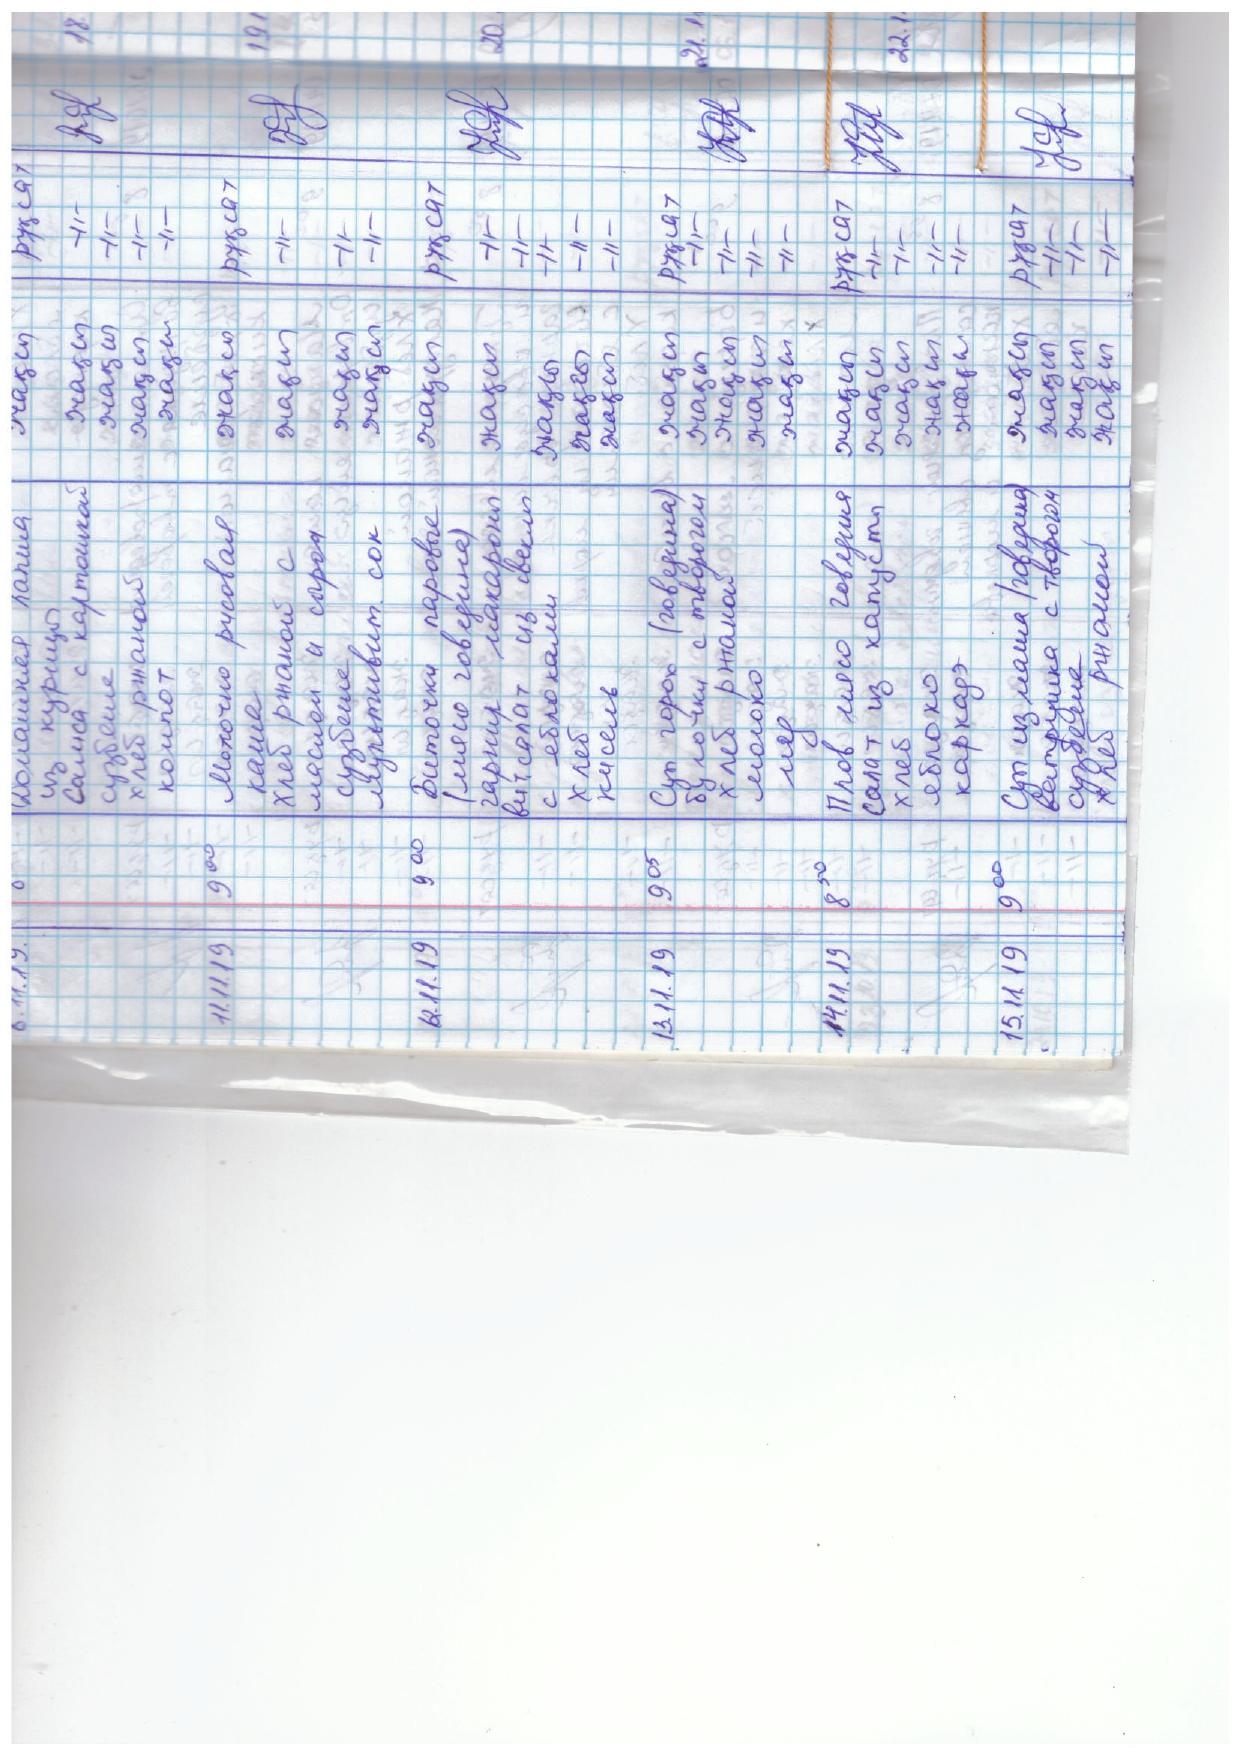 8.11.19. Домашняя лапша жақсы рұқсат
из курицы
Самса с картошкой жақсы -//-
сузбеше жақсы -//-
хлеб ржаной жақсы -//-
компот жақсы -//-
11.11.19 9 00 Молочно рисовая жақсы рұқсат
каша
хлеб ржаной с жақсы -//-
маслом и сыром
сузбеше жақсы -//-
мультивит. сок жақсы -//-
12.11.19 9 00 Биточки паровые жақсы рұқсат
(мясо говедина)
гарнир макароны жақсы -//-
вит салат из свеклы -//-
с яблоками жақсы -//-
хлеб жақсы -//-
кисель жақсы -//-
13.11.19 9 05 Суп горох (говедина) жақсы рұқсат
булочки с творогом жақсы -//-
хлеб ржаной жақсы -//-
молоко жақсы -//-
мед жақсы -//-
14.11.19 8 50 Плов мясо говедина жақсы рұқсат
Салат из капусты жақсы -//-
хлеб жақсы -//-
яблоко жақсы -//-
каркадэ жақсы -//-
15.11.19 9 00 Суп из маша (говедина) жақсы рұқсат
ватрушка с творогом жақсы -//-
сузбеше жақсы -//-
хлеб ржаной жақсы -//-
18
19.1
20.
21.1
22.1